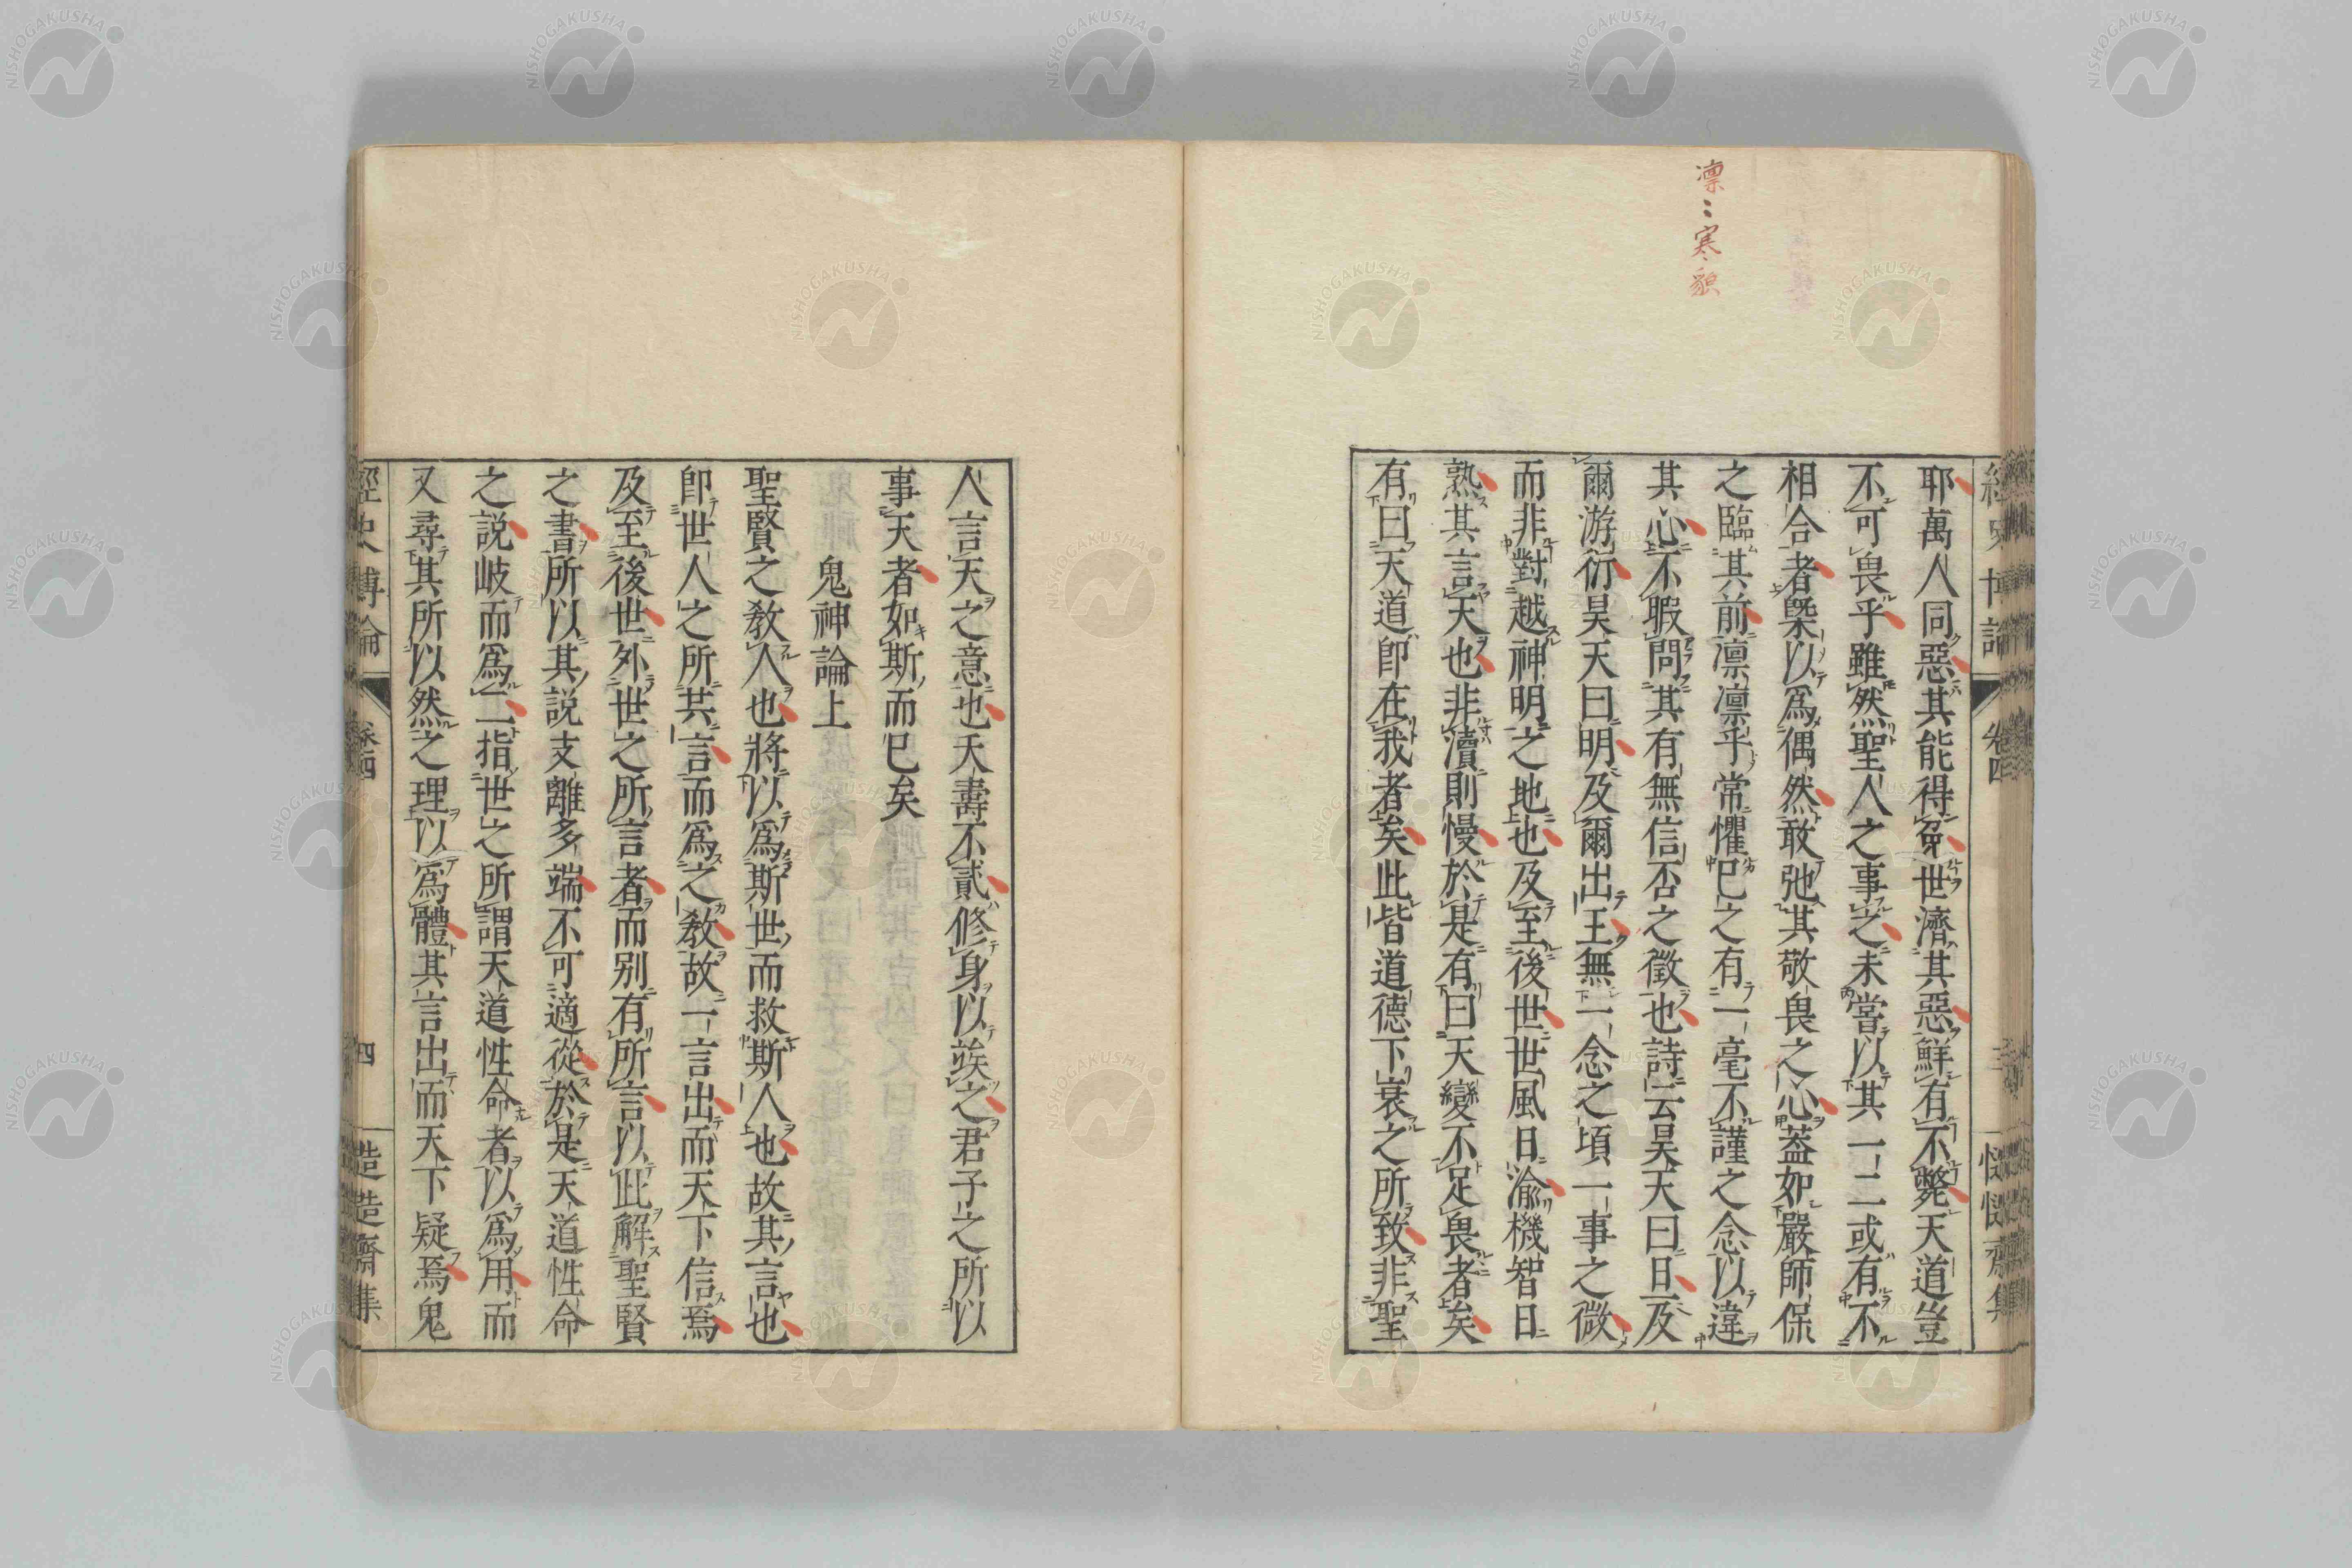 凛〻寒貌
耶萬人同惡其能得免世濟其惡鮮有不斃天道豈
不可畏乎雖然聖人之事之未嘗以其一二或有不
相合者槩以爲偶然敢弛其敬畏之心蓋如嚴師保
之臨其前凛凛乎常懼已之有一毫不謹之念以違
其心不暇問其有無信否之徵也詩云昊天曰旦及
爾游衍昊天曰明及爾出王無一念之頃一事之微
而非對越神明之地也及至後世世風日渝機智日
熟其言天也非瀆則慢於是有曰天變不足畏者矣
有曰天道卽在我者矣此皆道德下衰之所致非聖
人言天之意也夭壽不貳修身以竢之君子之所以
事天者如斯而已矣
鬼神論上
聖賢之敎人也將以爲斯世而救斯人也故其言也
卽世人之所共言而爲之敎故一言出而天下信焉
及至後世外世之所言者而別有所言以此解聖賢
之書所以其說支離多端不可適從於是天道性命
之說岐而爲二指世之所謂天道性命者以爲用而
又尋其所以然之理以爲體其言出而天下疑焉鬼
經史博論
卷四
四
造造齋集